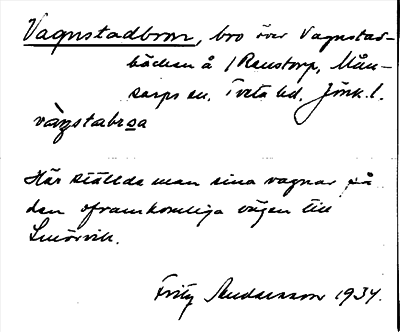 Vagnstadbron, bro över Vagnstad-
bäcken å 1 Renstorp, Mån-
sarps sn. Tveta hd. Jönk. l.
vàgnstabroa
Här ställde man sina vagnar på
den oframkomliga vägen till
Smörvik.
Fritz Andersson 1934.